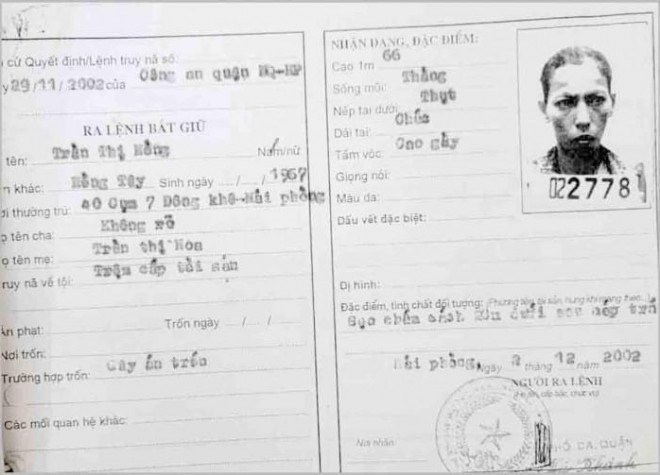 cứ Quyết định/Lệnh truy nã số:
29/11/2002 của Công an quận NQ-HP
RA LỆNH BẮT GIỮ
tên: Trần Thị Hồng Nam/nữ
khác: Hồng Tây Sinh ngày / / 1967
thường trú: 40 Cụm 7 Đông khê-Hải phòng
tên cha: Không rõ
tên mẹ: Trần thị Hoa
truy nã về tội: Trộm cắp tài sản
phạt: Trốn ngày / /
Nơi trốn:
Trường hợp trốn: Gây án trốn
Các mối quan hệ khác:
NHẬN DẠNG, ĐẶC ĐIỂM:
Cao 1m 66
Sống mũi: Thẳng
Nếp tai dưới: Thụt
Dái tai: Chúc
Tầm vóc: Cao gầy
Giọng nói:
Màu da:
Dấu vết đặc biệt:
022778
Dị hình:
Đặc điểm, tính chất đối tượng:
Sẹo chấm cách 2cm dưới sau
Hải phòng, Ngày 2 tháng 12 năm 2002
NGƯỜI RA LỆNH
Nơi nhận
CA. QUẬN
Khánh